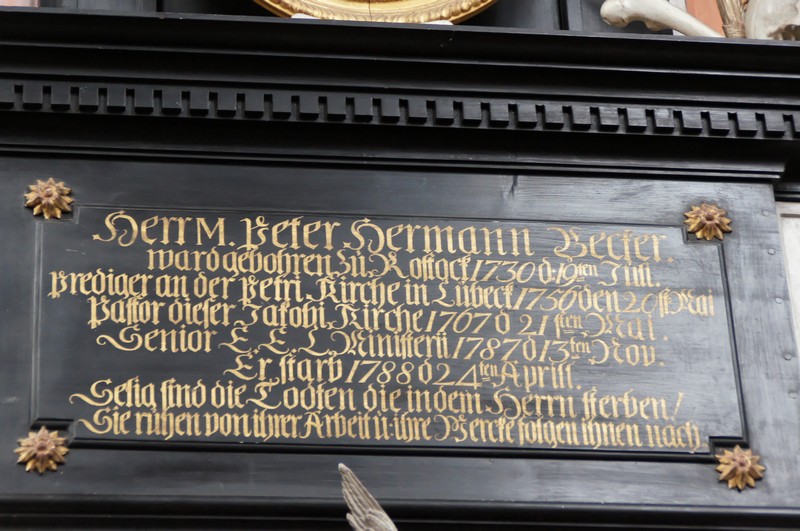 Herr M. Peter Hermann Becker.
ward gebohren zu Rostock 1730 d. 19ten Juli.
Prediger an der Petri Kirche in Lübeck 1756 den 20st Mai
Pastor dieser Jakobi Kirche 1767 d 21sten Mai.
Senior E. E. L. Ministerii 1787 d 13ten Nov.
Er starb 1788 d 24ten April.
Selig sind die Todten die in dem Herrn sterben/
Sie ruhen von ihrer Arbeit u: ihre Wercke folgen ihnen nach